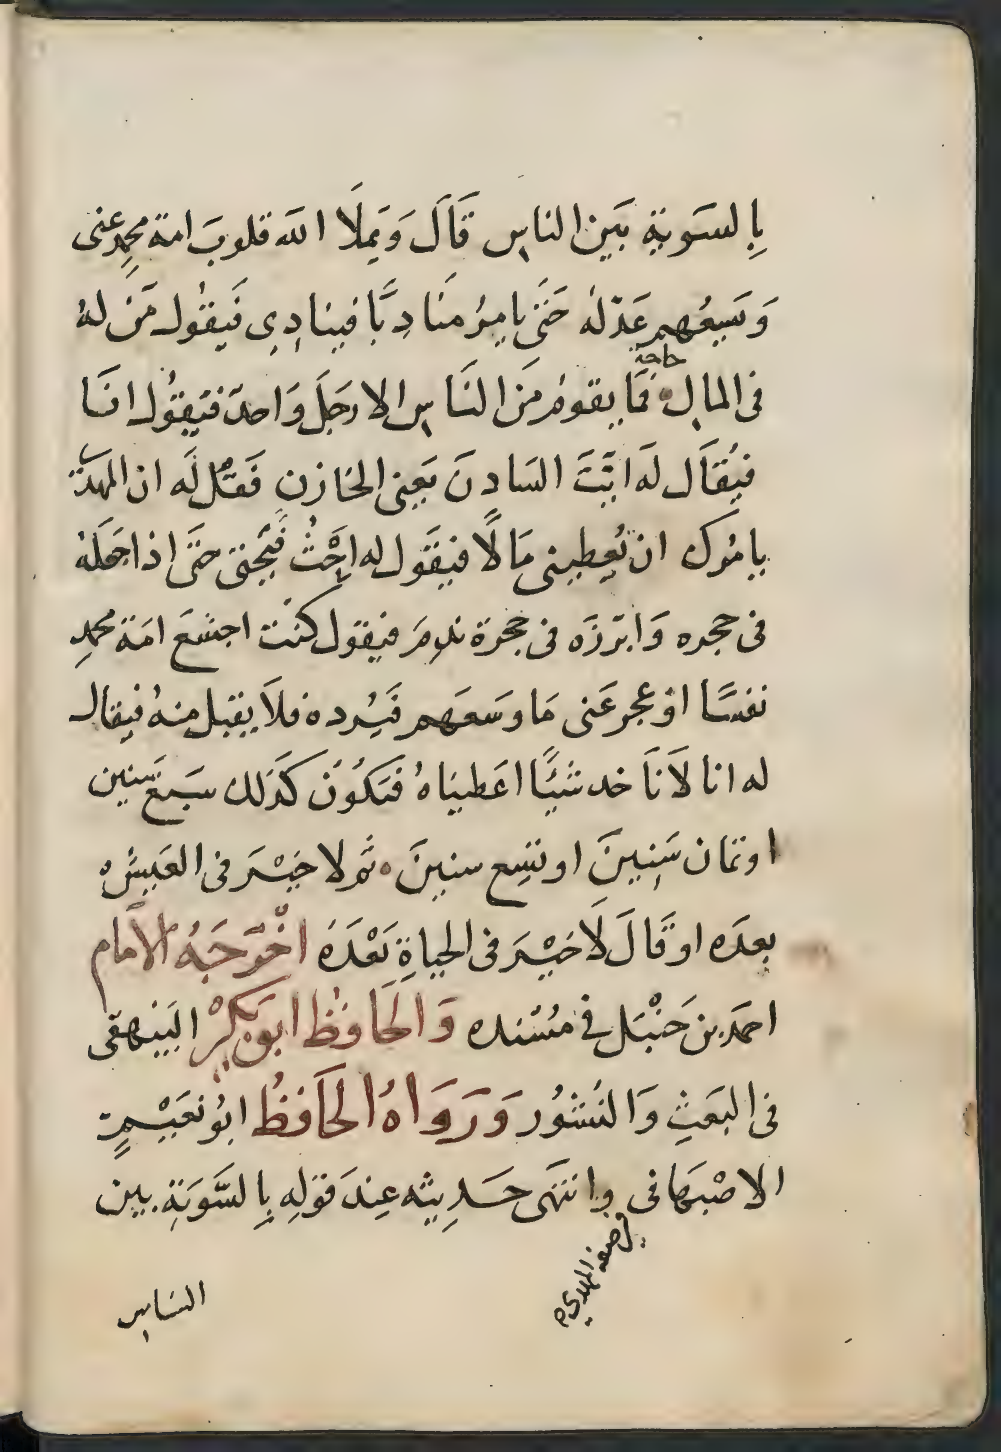 بِالسَوية بَين الناس قَالَ وَيملَا الله قلوبَ امة محمد غنى
وَيَسعُهم عَدْلهُ حَتى يامرُ مناديًا فينادى فَيقُول مَنْ لهُ
فى المال حاجة فمَا يقومُ منَ النَاس الا رجَل وَاحد فيَقُول انَا
فيُقَال لهَ ايتَ السَادنَ يَعنى الخازن فَقُل لَه ان المهدى
يامُرك ان تُعطينى مَالًا فيقَول له احْثُ فيَحثى حتَى اذا جعَلهُ
فى حجره وَابرَزَه فى حجرة ندِمَ فيقول كنْت اجشعَ امَة محمدٍ
نفسًا او عجز عَنى مَا وسَعَهم فَيُرده فلاَ يقبل منهُ فيقال
له انا لاَ نَاخد شَيًا اعَطيناهُ فتكُونَ كذَلك سبَعَ سَنين
او ثمان سَنِينَ او تسِع سنينَ ثم لا خَيْرَ فى العَيش
بعدَه او قَالَ لاَ خَيْرَ فى الحياةِ بَعْدَهُ اخْرَجَهُ الاَمام
احمدَ بن حَنْبَل فى مسْنده وَالحَافظُ ابوُبَكرْ البَيْهقى
فى البَعَثِ وَالنُشوُر وَرَوَاهُ الحَافظُ ابوُ نعَيْمٍ
الاصْبَهَانى وانتَهَى حَديثه عِندَ قوَلِه بِالسَّوَيَةِ بين
فى صفة المهدى
النَاس